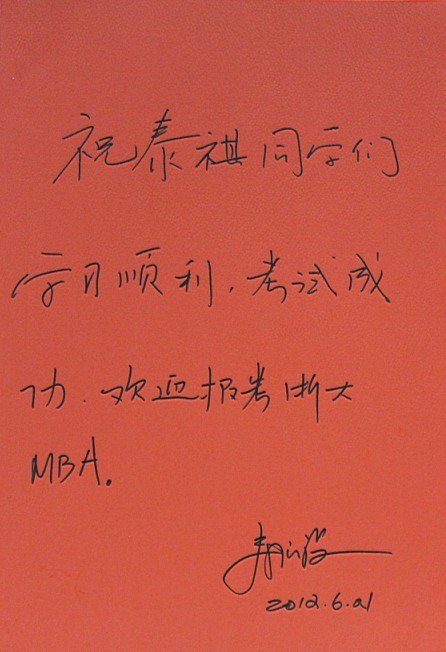 祝泰祺同学们
学习顺利，考试成
功。欢迎报考浙大
MBA.
2012.6.21